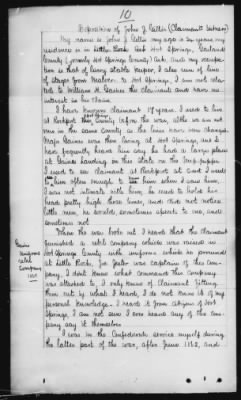 10
Deposition of John J. Gillis (Claimant's witness)
My name is John J. Gillis my age is 54 years, my
residence is in Hot Springs, Garland
County (formerly Hot Springs County) Ark. and my occupa-
tion is that of livery stable keeper, I also run a line
of stages from Malvern to Hot Springs, I am not
related to William H. Gaines the claimant and have no
interest in his claim.
I have known claimant 17 years. I used to live
at Rockport this County before the war,
in the same County as the lines have been changed.
Major Gaines was then living at Hot Springs, and I
have frequently heard him say he had a large place
at Gaines landing in this State on the Mississippi.
I used to see claimant at Rockport and used
to him often enough to him when I saw him,
I was not intimate with him, he used to hold his
head pretty high those times, and did not notice
little men, he would sometimes speak to me, and
sometimes not.
When the war broke out I heard that the claimant
furnished a rebel company which was raised in
Hot Springs County with uniforms which he procured
at Little Rock, was captain of this com-
pany. I don't know what command this company
was attached to, I only know of claimant fitting
them out by what I heard, I do not know it of my
personal knowledge. I heard it from citizens of Hot
Springs, I am not sure I ever heard any of the com-
pany say it themselves
I was in the Confederate service myself during
the latter part of the war, after June 1862, and
Gaines
uniforms
rebel
Company